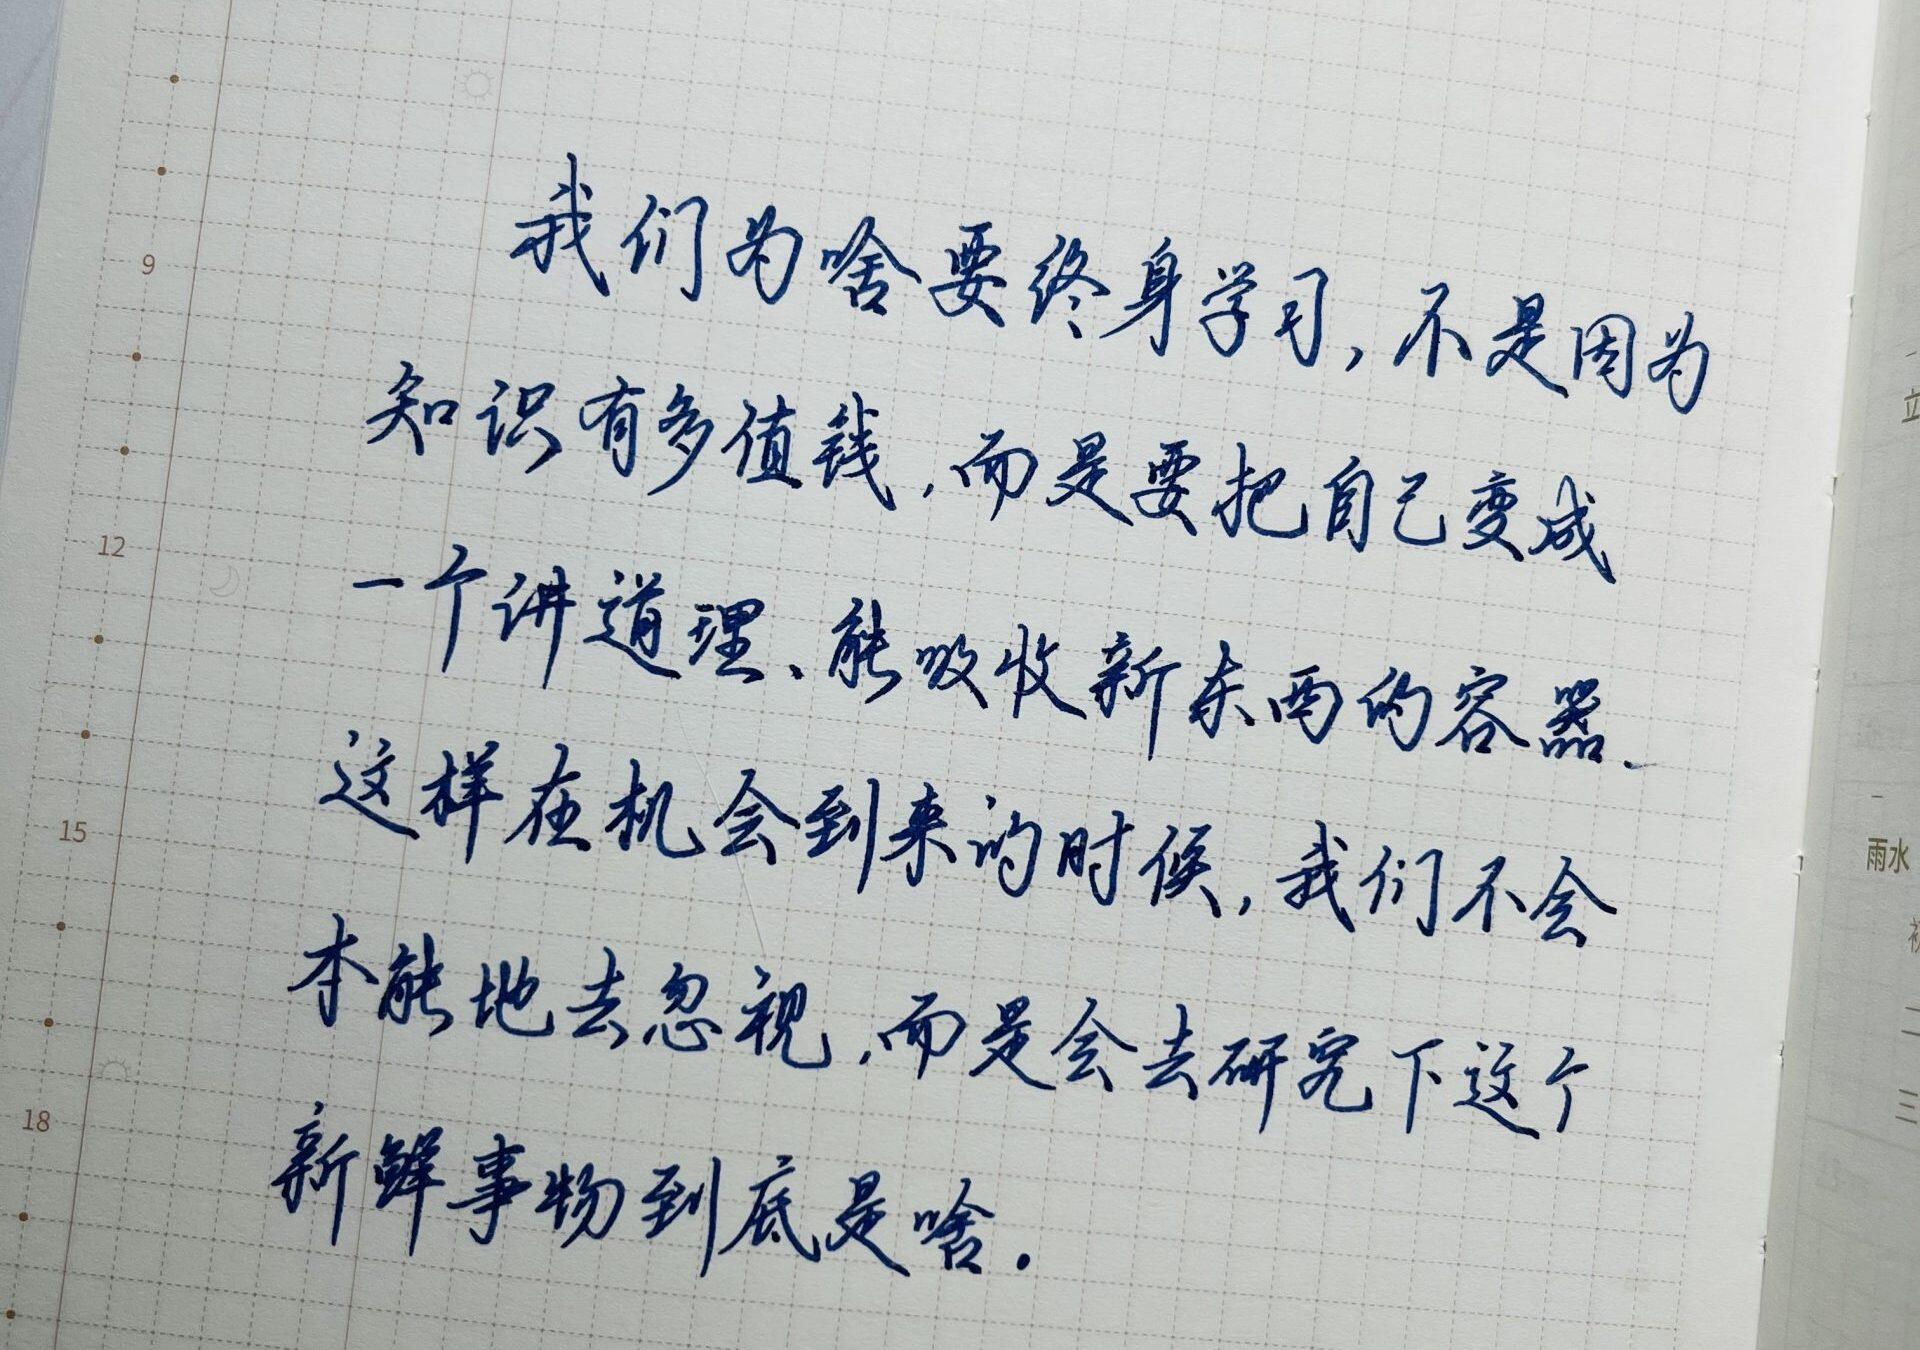 我们为啥要终身学习,不是因为
知识有多值钱,而是要把自己变成
一个讲道理、能吸收新东西的容器.
这样在机会到来的时候,我们不会
本能地去忽视,而是会去研究下这个
新鲜事物到底是啥.
9
12
15
18
立
雨水
二
三